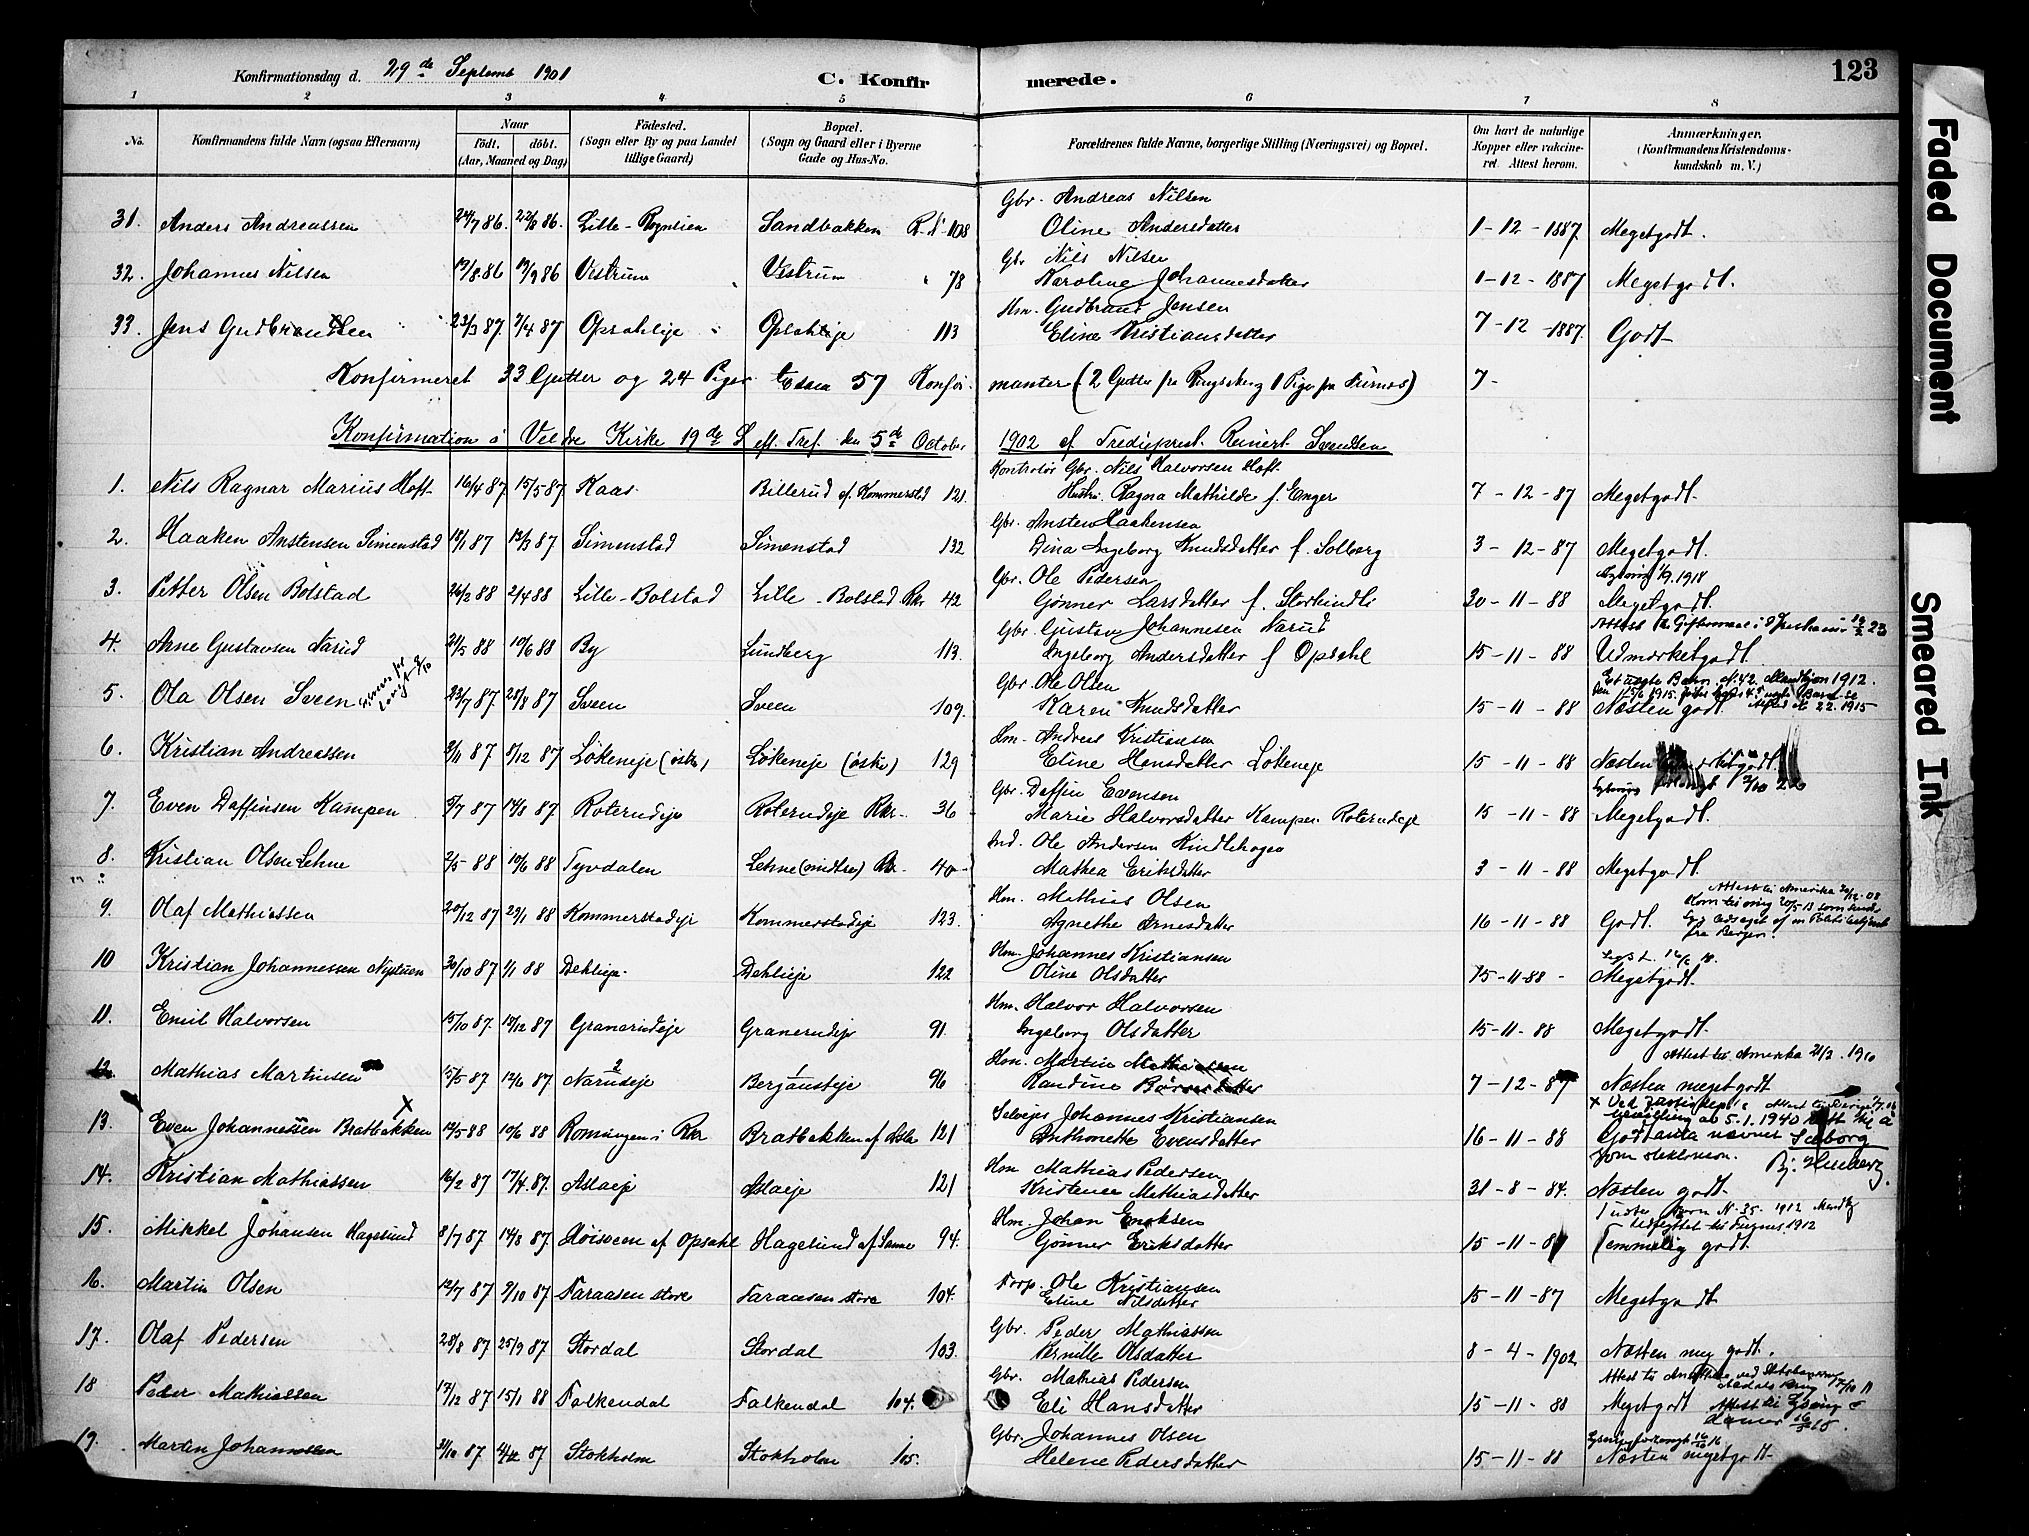 123
Konfirmationsdag d. 29de Septemb 1901 C. Konfirmerede.
1 2 3 4 5 6 7 8
No. Konfirmandens fulde Navn (ogsaa Efternavn) Naar født. døbt. (Aar, Maaned og Dag) Fødested. (Sogn eller By og paa Landet tillige Gaard) Bopæl. (Sogn og Gaard eller i Byerne Gade og Hus-No. Forældrenes fulde Navne, borgerlige Stilling (Næringsvei) og Bopæl. Om havt de naturlige Kopper eller vakcineret. Attest herom. Anmærkninger. (Konfirmandens Kristendomskundskab m. V.)
Gbr. Andreas Nilsen
31. Anders Andreassen 24/7 86. 22/8 86. Lille-Rognlien Sandbakken 108 Oline Andersdatter 1-12-1887 Megetgodt.
Gbr Nils Nilsen
32. Johannes Nilsen 19/8.86 19/9 86 Vestrum Vestrum 78 Karoline Johannesdatter 1-12-1887 Megetgodt.
Hm. Gudbrand Jensen
33. Jens Gudbrandsen 23/3 87. 7/4 87 Opsahleje Opsahleje 113 Eline Kristiansdatter 7-12-1887. Godt
Konfirmeret 33 Gutter og 24 Piger tilsam 57 Konfirmanter (2 Gutter fra Ringsaker og 1 Pige fra Furnes) 7-
Konfirmation i Veldre Kirke 19de S eft. Tref. den 5te October 1902 af Tredieprest Reinert Svendsen
Kontrolør Gbr. Nils Halvorsen Hoft
1. Nils Ragnar Marius Hoft 16/4 87 15/5 87 Kaas Billerud af Kommerstad 121 Hustru Ragna Mathilde f. Enger 7-12-87 Megetgodt.
Gbr. Ansten Haakensen
2. Haaken Anstensen Simenstad 18/1 87 13/3 87 Simenstad Simenstad 132 Dina Ingeborg Knudsdatter f. Solberg 3-12-87 Megetgodt.
Gbr. Ole Pedersen 1/9.1918
3. Petter Olsen Bolstad 26/2 88 2/4 88 Lille-Bolstad Lille-Bolstad Rkr 42 Gønner Larsdatter f. Storkindli 30-11-88 Megetgodt.
Gbr. Gustav Johannesen Narud
4. Arne Gustavsen Narud 21/5 88 10/6 88 By Lundberg 113. Ingeborg Andersdatter f Opdahl 15-11-88 Udmærketgodt
Gbr. Ole Olsen Et uægte Barn N. 42. Mandkjøn 1912.
5. Ola Olsen Sveen 23/7 87. 28/8 87 Sveen Sveen 109. Karen Knudsdatter 15-11-88 Næsten godt. N. 22. 1915
Hm. Andreas Kristiansen
6. Kristian Andreassen 3/11 87 8/12 87 Løkeneje (østre) Løkeneje (østre) 129 Eline Hansdatter Løkeneje 15-11-88 Næsten
Gbr. Daffin Evensen
7. Even Daffinsen Kampen 5/7 87 14/8 87 Roterudeje Roterudeje Rkr. 36 Marie Halvorsdatter Kampen Roterudeje 15-11-88 Megetgodt.
Ind. Ole Andersen Kindlihagen
8. Kristian Olsen Lehne 2/5 88 10/6 88 Tyvdalen Lehne (midtre) Rkr. 40 Mathea Eriksdatter 3-11-88 Megetgodt.
Hm. Mathias Olsen Attest til Amerika 30/12.08
9. Olaf Mathiassen 20/12 87 29/1 88 Kommerstadeje Kommerstadeje 123. Agnethe Arnesdatter 16-11-88 Godt. fra Bergen.
Hm. Johannes Kristiansen
10 Kristian Johannessen Nystuen 30/10 87 1/1 88 Dehlieje. Dehlieje 122 Oline Olsdatter 15-11-88 Megetgodt.
Hm. Halvor Halvorsen
11. Emil Halvorsen 15/10 87. 19/12 87 Granerudeje Granerudeje 91. Ingeborg Olsdatter 15-11-88 Megetgodt.
Hm. Martin Mathiassen Attest til Amerika 21/3.1910
12. Mathias Martinsen 15/5 87 12/6 87 Narudeje Bergausteje 96 Randine 7-12-87 Næsten megetgodt
Selvejer Johannes Kristiansen
13. Even Johannessen Bratbakken x 12/5 88 10/6 88 Romungen i Rkr Bratbakken af Asla 121 Anthonette Evensdatter 16-11-88 Godt 5.1.1940 antа navnet Seeborg som slektsnavn.
Hm Mathias Pedersen
14. Kristian Mathiassen 16/2 87 17/4.87. Aslaeje Aslaeje 121 Kristence Mathiasdatter 31-8-84. Næsten godt.
Hm. Johan Eriksen Udflyttet til Furnes 1912
15. Mikkel Johansen Hagelund 8/7 87 14/8 87. Høisveen af Opsahl Hagelund af Sanne 94. Gønner Eriksdatter 15-11-8 Temmelig godt.
Torp. Ole Kristiansen
16. Martin Olsen 12/7 87 9/10 87 Faraasen store Faraasen store 104. Eline Nilsdatter 15-11-87 Megetgodt
Gbr. Peder Mathiassen
17. Olaf Pedersen 28/8 87 25/9 87 Stordal Stordal 103. Pernille Olsdatter 8-4-1902 Næsten meg godt.
Gbr. Mathias Pedersen
18 Peder Mathiassen 17/12 87 15/1 88 Falkendal Falkendal 104. Eli Hansdatter 15-11-88 Megetgodt
Gbr. Johannes Olsen
19. Martin Johannessen 31/10 87 4/12 87 Stokholm Stokholm 105. Helene Pedersdatter 15-11-88 Næsten megetgodt
Faded Document
Smeared Ink